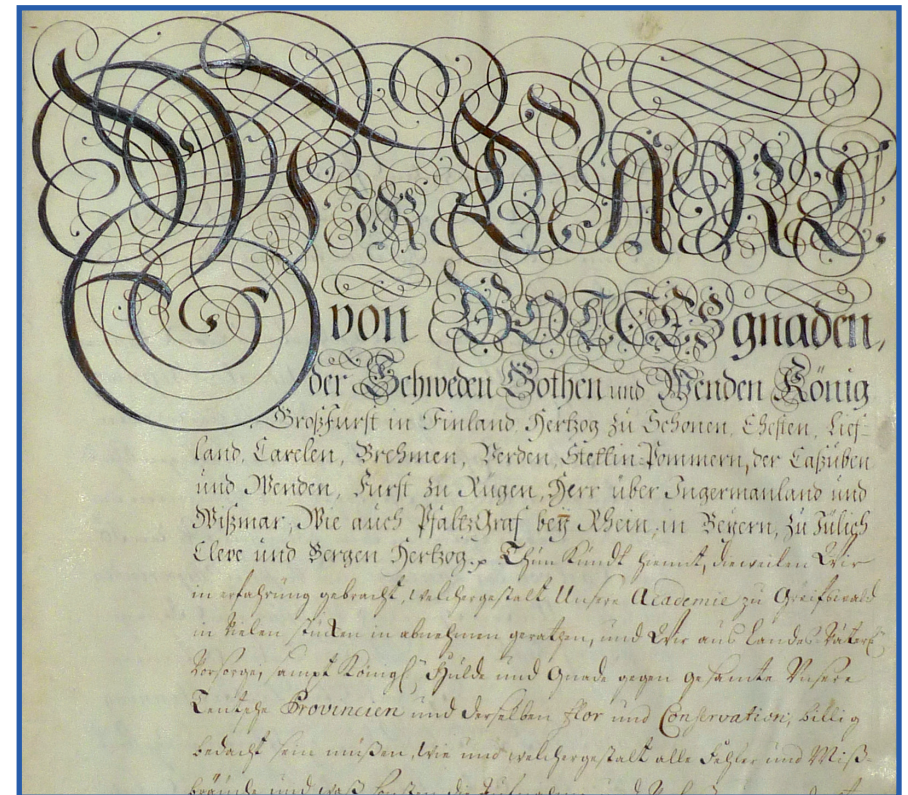 WIR CARL,
von GOTTES gnaden,
der Schweden Gothen und Wenden König
Großfürst in Finland, Hertzog zu Schonen, Ehesten, Lief-
land, Carelen, Brehmen, Verden, Stettin-Pommern, der Caßuben
und Wenden, Fürst zu Rügen, Herr über Ingermanland und
Wißmar, Wie auch PfaltzGraf beÿ Rhein, in Beyern, zu Jülich
Cleve und Bergen Hertzog. Thun Kundt hiemit, dieweilen Wir
in erfahrung gebracht, welchergestalt Unsere Academie zu Greifswald
in vielen stücken in abnehmen gerathen, und Wir aus Landes-Väterl.
Vorsorge, sampt Königl. Hülde und Gnade gegen gesamte Unsere
Teutsche Provincien und derselben Flor und Conservation, billig
bedacht sein müßen, wie und welchergestalt alle Fehler und Miß-
bräuche und waß sonsten die